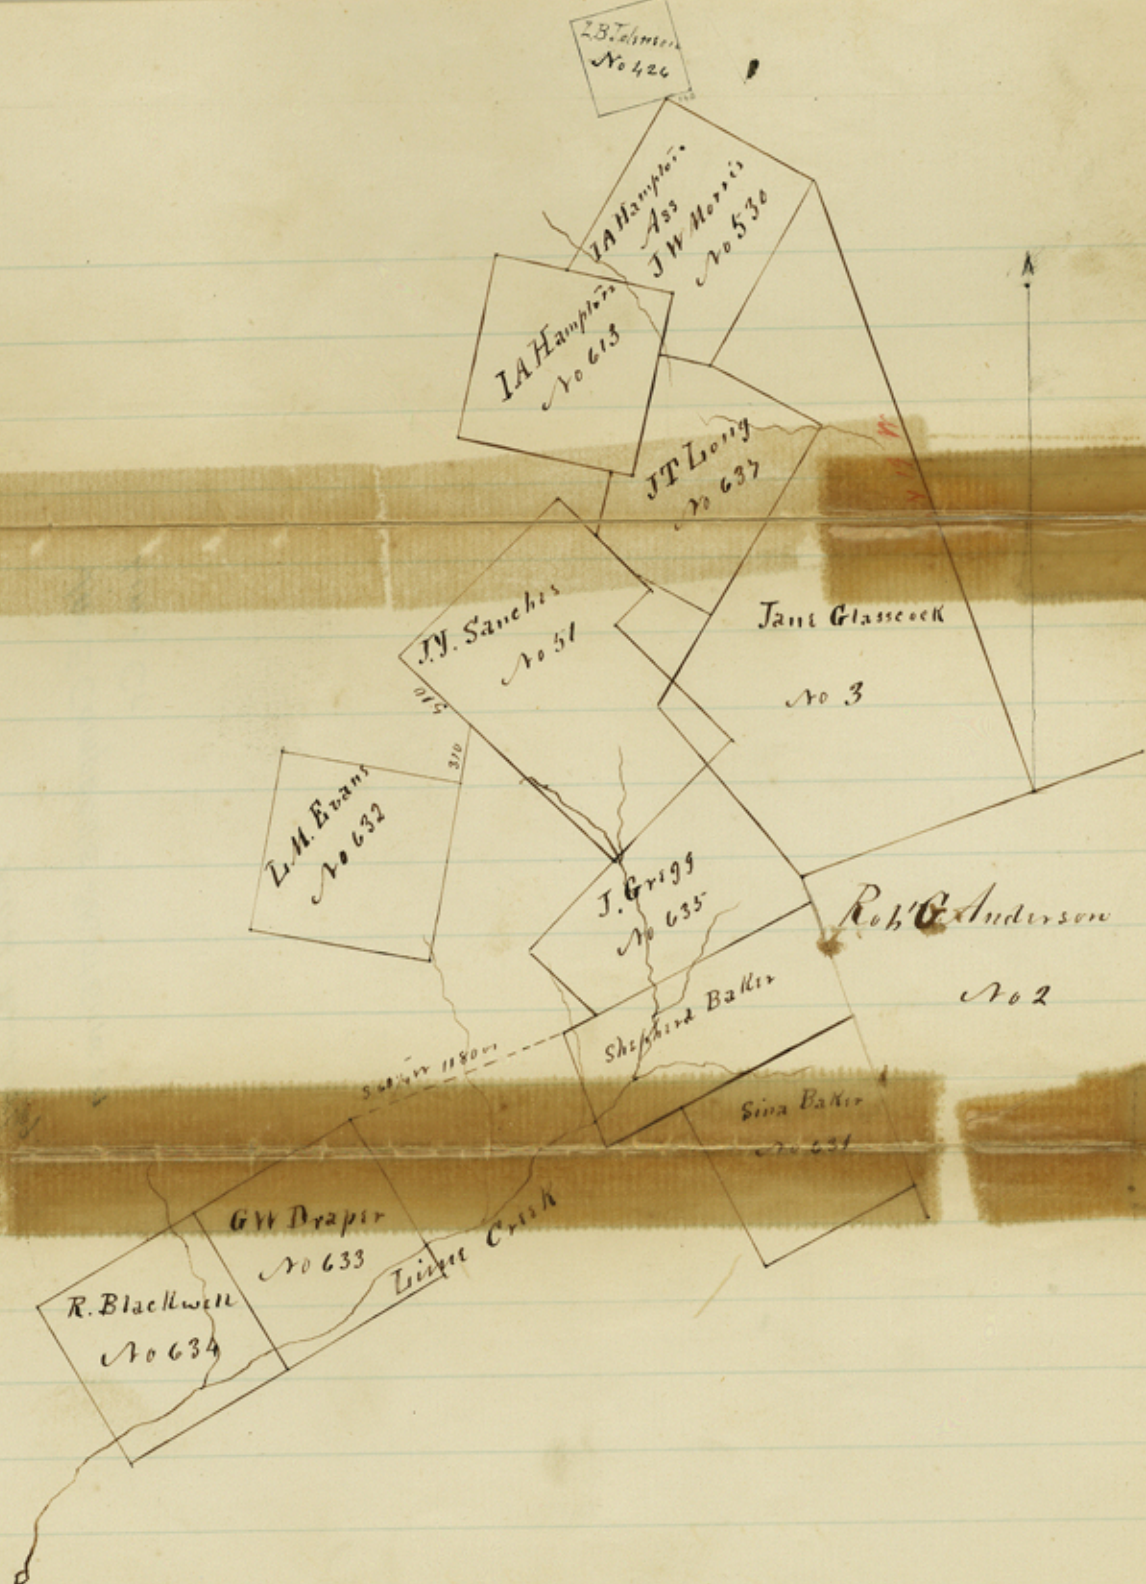 Z.B. Johnson
No 426
I A Hampton
Ass
J W Morris
No 530
I A Hampton
No 613
J T Long
No 637
J.Y. Sanches
No 51
510
310
Jane Glasscock
No 3
L.M. Evans
No 632
J. Gregg
No 635
Rob' G. Anderson
No 2
Shepherd Baker
Sina Baker
No 631
G W Draper
No 633
Lime Creek
R. Blackwell
No 634